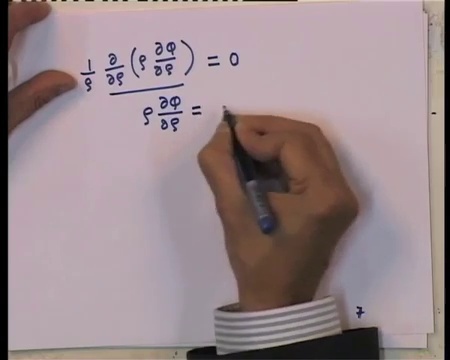 1/ρ ∂/∂ρ (ρ ∂Φ/∂ρ) = 0
ρ ∂Φ/∂ρ =
7